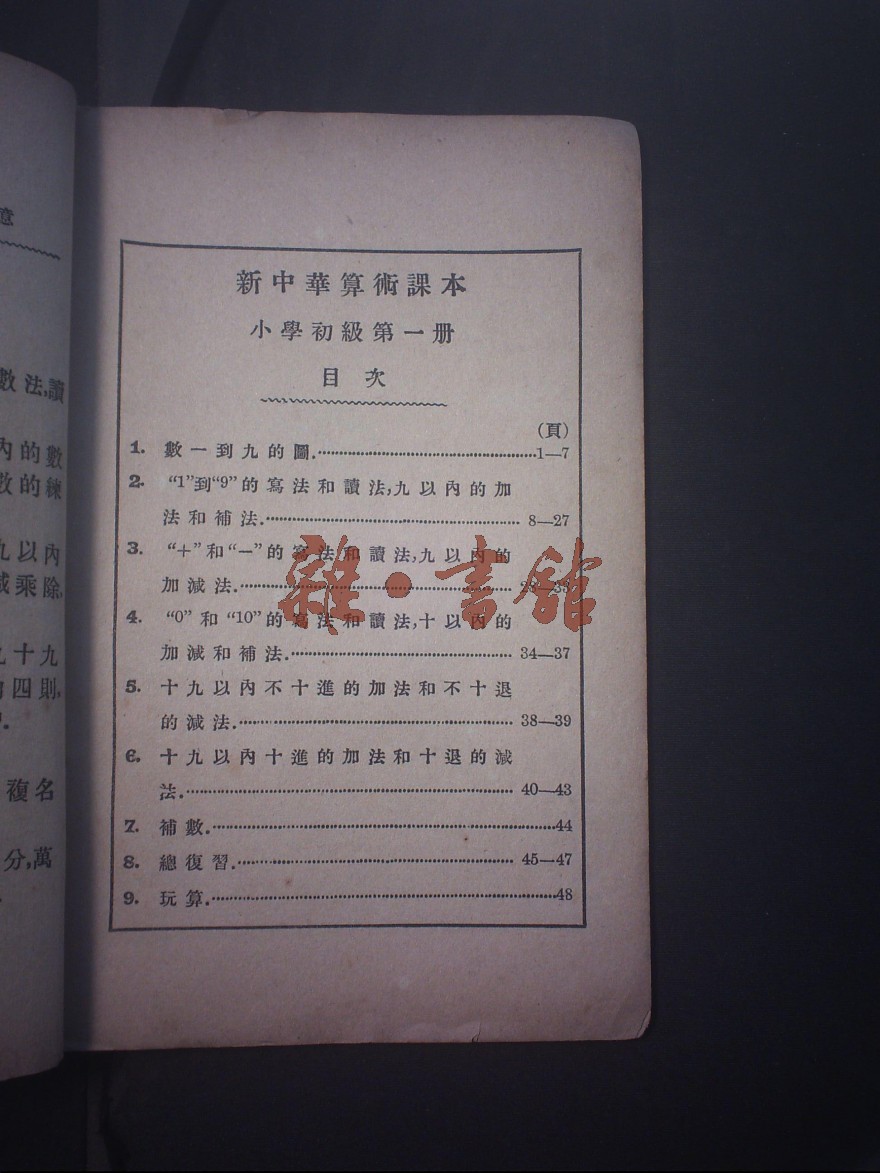 新中華算術課本
小學初級第一册
目次
(頁)
1. 數一到九的圖.…………1—7
2. “1”到“9”的寫法和讀法,九以內的加
法和補法.…………8—27
3. “+”和“−”的寫法和讀法,九以內的
加減法.…………28—33
4. “0”和“10”的寫法和讀法,十以內的
加減和補法.…………34—37
5. 十九以內不十進的加法和不十退
的減法.…………38—39
6. 十九以內十進的加法和十退的減
法.…………40—43
7. 補數.…………44
8. 總復習.…………45—47
9. 玩算.…………48
雜·書館
意
數法,讀
內的數
數的練
九以內
減乘除,
九十九
的四則,
複名
分,萬